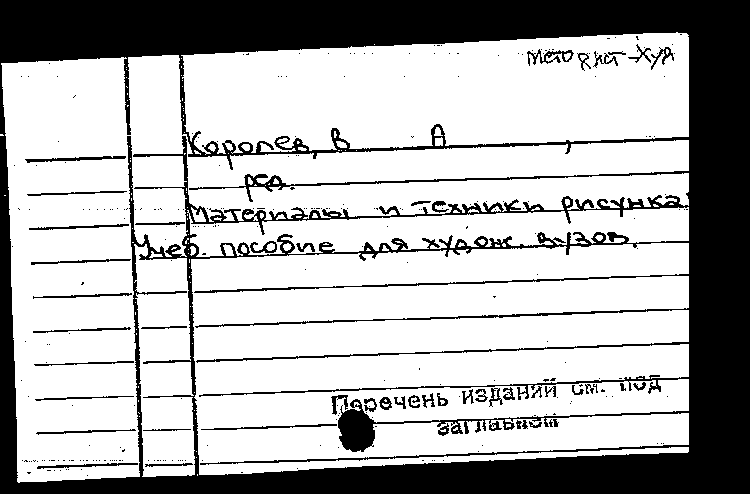 Методист-Худ
Королев, В А ,
ред.
Материалы и техники рисунка:
Учеб. пособие для худож. вузов.
Перечень изданий см. под
заглавием